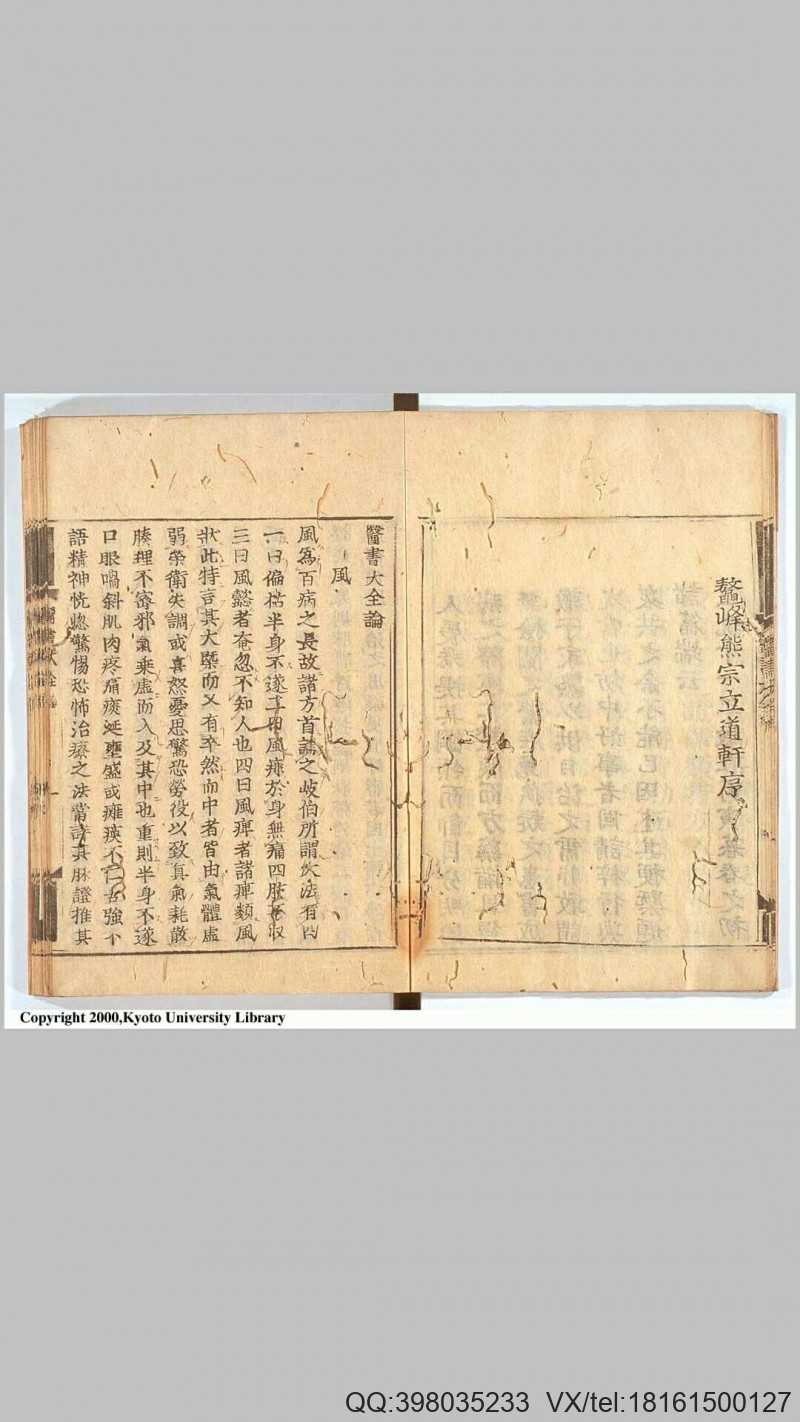 鼇峰熊宗立道軒序
醫書大全論
風
風爲百病之長故諸方首論之岐伯所謂大法有四
一曰偏枯半身不遂二曰風痱於身無痛四肢不收
三曰風懿者奄忽不知人也四曰風痺者諸痺類風
狀此特言其大槩而又有卒然而中者皆由氣體虛
弱榮衛失調或喜怒憂思驚恐勞役以致真氣耗散
腠理不密邪氣乘虛而入及其中也重則半身不遂
口眼喎斜肌肉疼痛痰涎壅盛或癱瘓不仁舌強不
語精神恍惚驚惕恐怖治療之法當詳其脉證推其
Copyright 2000,Kyoto University Library
QQ:398035233 VX/tel:18161500127